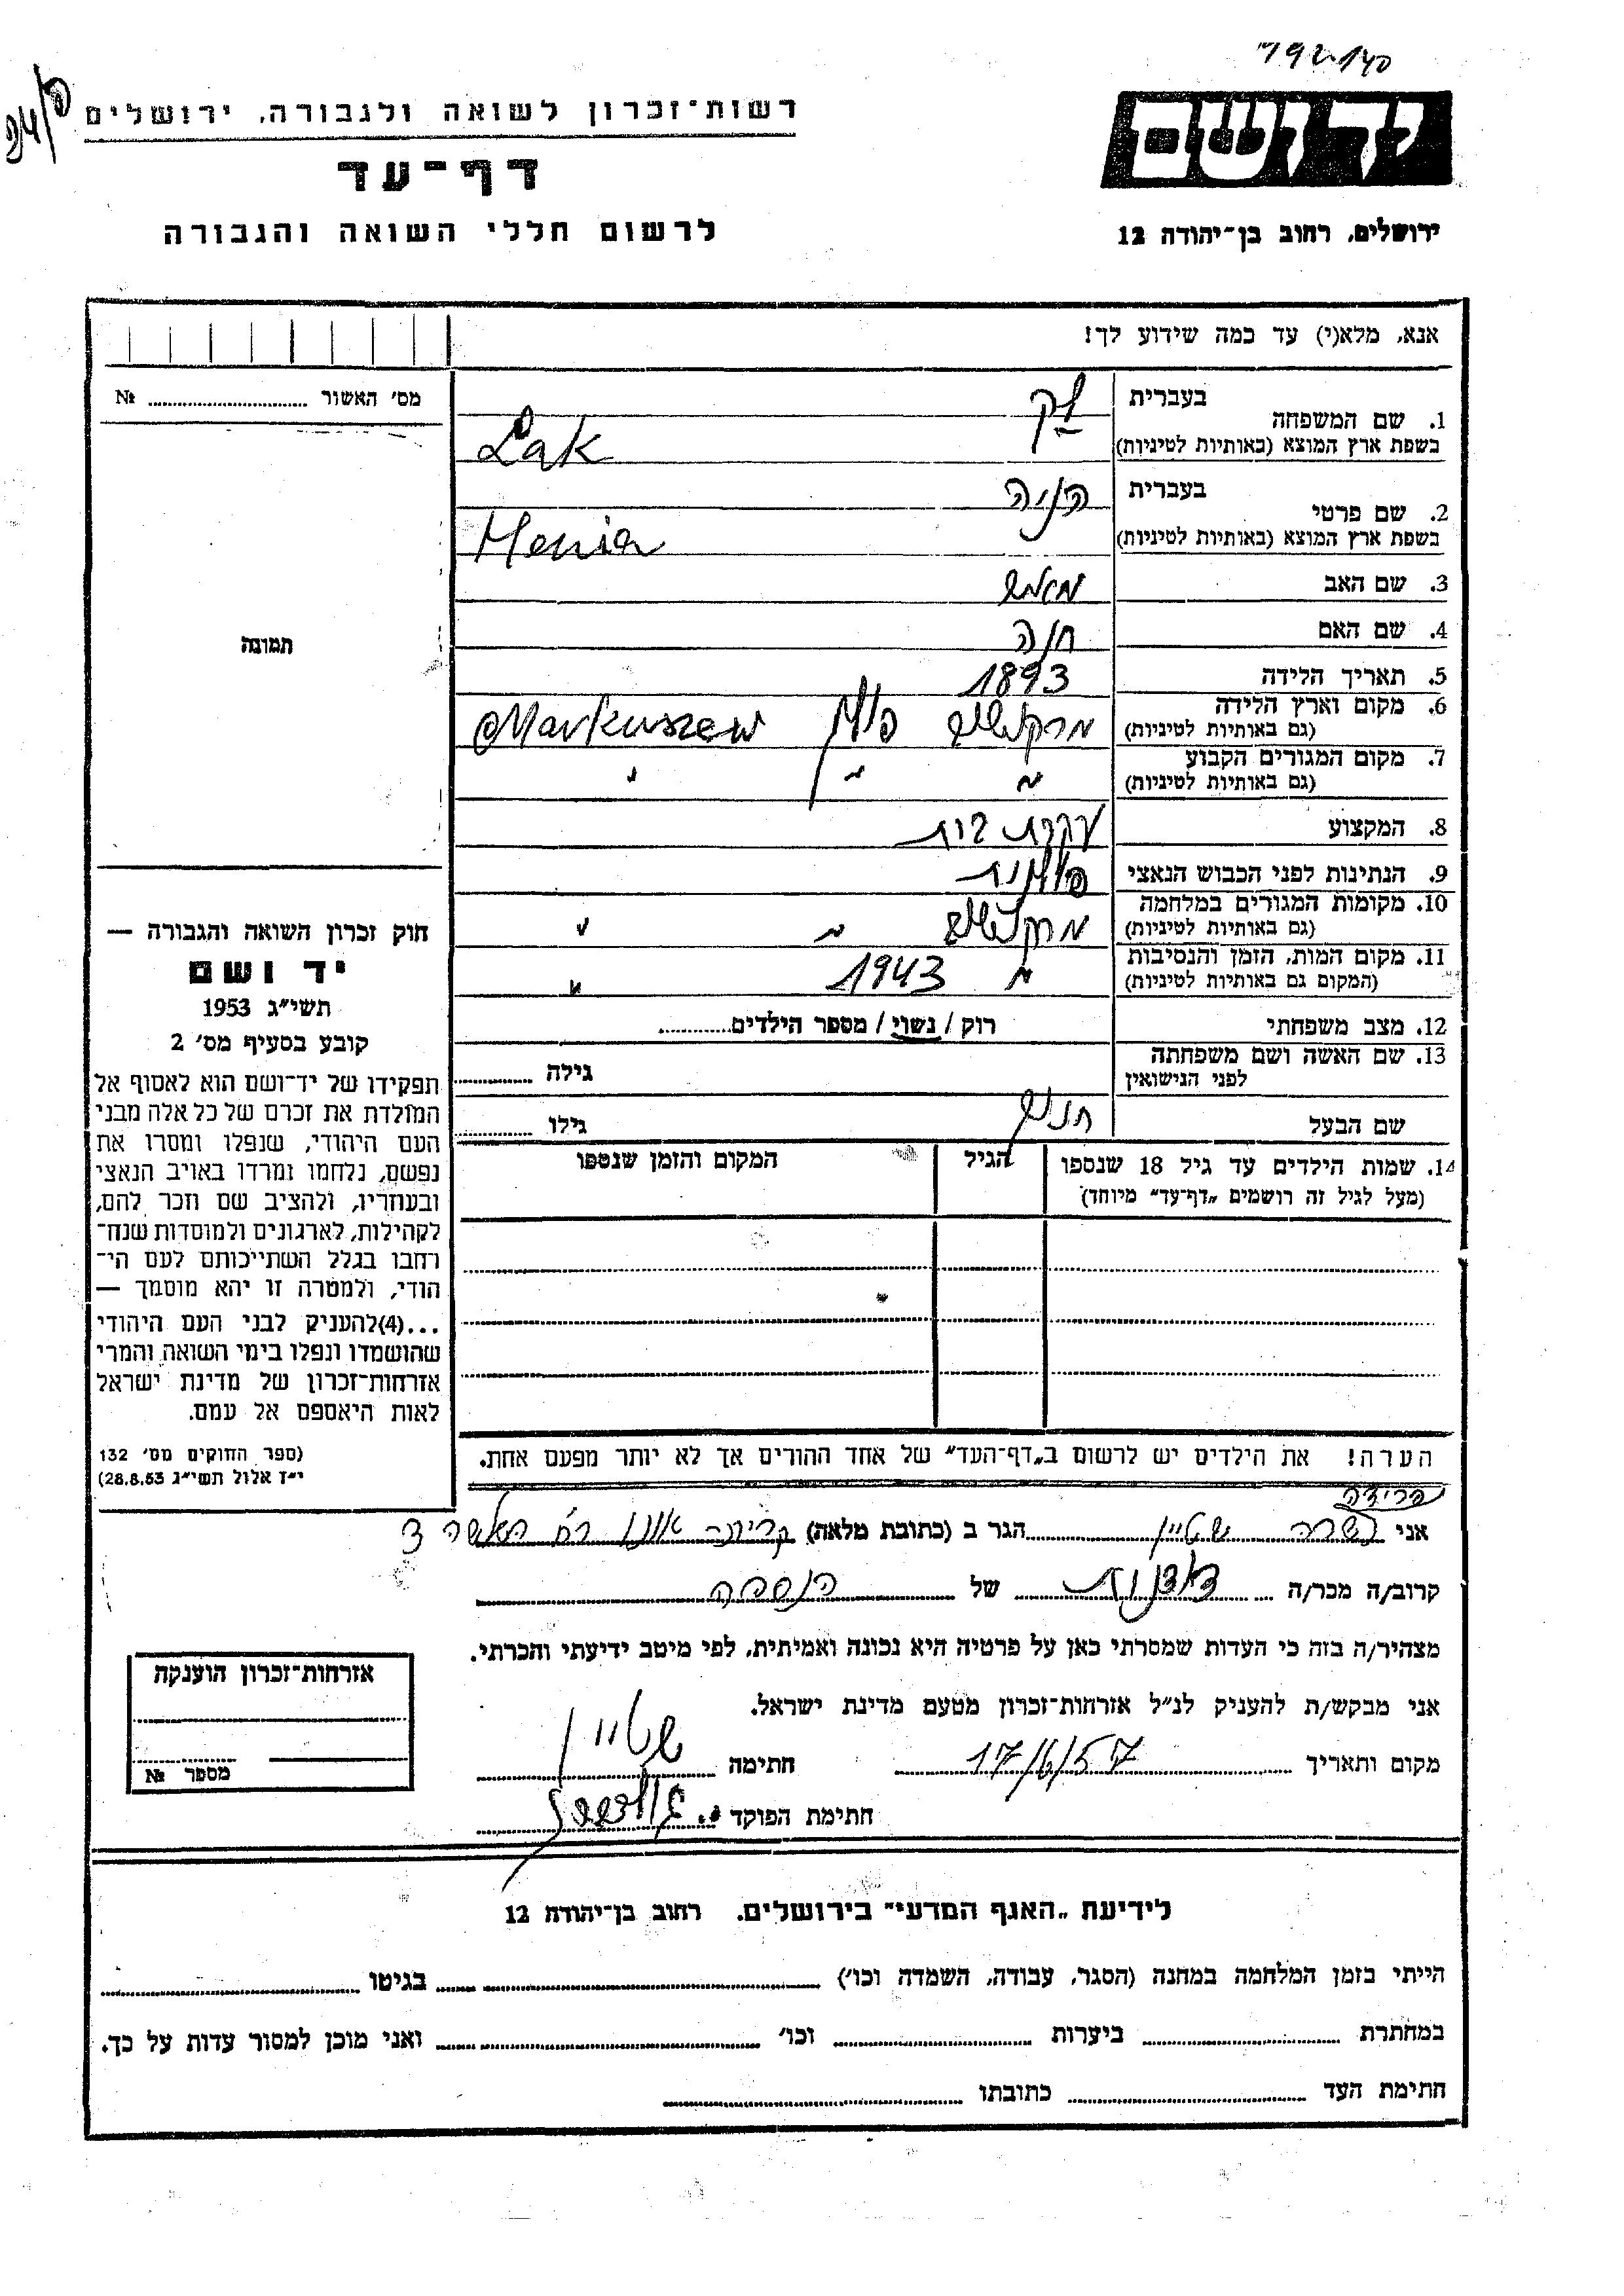 רשות־זכרון לשואה ולגבורה, ירושלים
דף־עד
לרשום חללי השואה והגבורה
יד ושם
ירושלים, רחוב בן־יהודה 12
אנא, מלא(י) עד כמה שידוע לך!
מס׳ האשור № 
תמונה
1. שם המשפחה בעברית לק
בשפת ארץ המוצא (באותיות לטיניות) Lak
2. שם פרטי בעברית הניה
בשפת ארץ המוצא (באותיות לטיניות) Henia
3. שם האב
4. שם האם חנה
5. תאריך הלידה 1893
6. מקום וארץ הלידה פולין Markuszew
(גם באותיות לטיניות)
7. מקום המגורים הקבוע " " "
(גם באותיות לטיניות)
8. המקצוע עקרת בית
9. הנתינות לפני הכבוש הנאצי פולנית
10. מקומות המגורים במלחמה " "
(גם באותיות לטיניות)
11. מקום המות, הזמן והנסיבות " 1943 "
(המקום גם באותיות לטיניות)
12. מצב משפחתי רוק / נשוי / מספר הילדים
13. שם האשה ושם משפחתה לפני הנישואין גילה
שם הבעל גילו
14. שמות הילדים עד גיל 18 שנספו הגיל המקום והזמן שנספו
(מעל לגיל זה רושמים „דף־עד״ מיוחד)
הערה! את הילדים יש לרשום ב„דף־העד״ של אחד ההורים אך לא יותר מפעם אחת.
חוק זכרון השואה והגבורה —
יד ושם
תשי״ג 1953
קובע בסעיף מס׳ 2
תפקידו של יד־ושם הוא לאסוף אל
המולדת את זכרם של כל אלה מבני
העם היהודי, שנפלו ומסרו את
נפשם, נלחמו ומרדו באויב הנאצי
ובעוזריו, ולהציב שם וזכר להם,
לקהילות, לארגונים ולמוסדות שנח־
רבו בגלל השתייכותם לעם הי־
הודי, ולמטרה זו יהא מוסמך —
...(4)להעניק לבני העם היהודי
שהושמדו ונפלו בימי השואה והמרי
אזרחות־זכרון של מדינת ישראל
לאות היאספם אל עמם.
(ספר החוקים מס׳ 132
י״ז אלול תשי״ג 28.8.53)
פרידה
אני שטיין הגר ב (כתובת מלאה) קרית אונו
קרוב/ה מכר/ה של הנספה
מצהיר/ה בזה כי העדות שמסרתי כאן על פרטיה היא נכונה ואמיתית, לפי מיטב ידיעתי והכרתי.
אני מבקש/ת להעניק לנ״ל אזרחות־זכרון מטעם מדינת ישראל.
מקום ותאריך 17/6/57 חתימה שטיין
חתימת הפוקד
אזרחות־זכרון הוענקה
מספר №
לידיעת „האגף המדעי״ בירושלים, רחוב בן־יהודה 12
הייתי בזמן המלחמה במחנה (הסגר, עבודה, השמדה וכו׳) בגיטו
במחתרת ביערות וכו׳ ואני מוכן למסור עדות על כך.
חתימת העד כתובתו